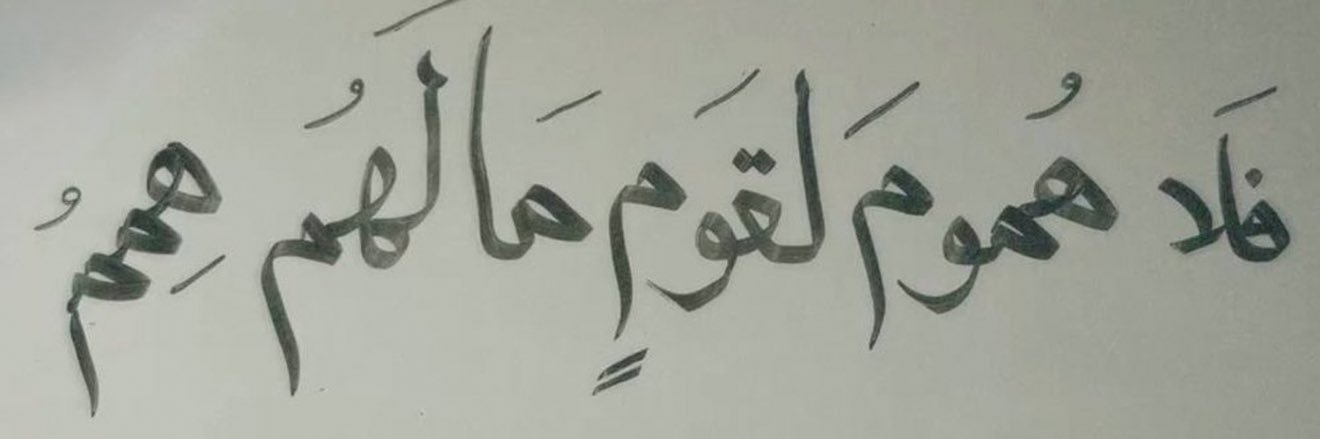 فَلا هُمومَ لقَومٍ مَا لَهُم هِممُ